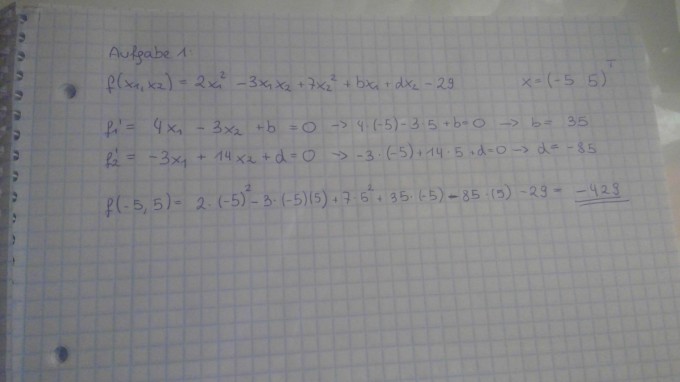 Aufgabe 1:
f(x₁,x₂) = 2x₁² - 3x₁x₂ + 7x₂² + bx₁ + dx₂ - 29 x = (-5 5)ᵀ
f₁' = 4x₁ - 3x₂ + b = 0 → 4·(-5) - 3·5 + b = 0 → b = 35
f₂' = -3x₁ + 14x₂ + d = 0 → -3·(-5) + 14·5 + d = 0 → d = -85
f(-5, 5) = 2·(-5)² - 3·(-5)(5) + 7·5² + 35·(-5) - 85·(5) - 29 = -429